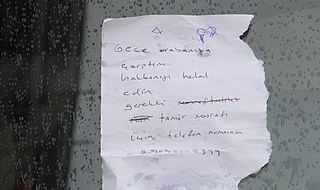 Gece arabanıza
çarptım.
hakkınızı helal
edin
gerekli
tamir masrafı
için telefon numaram